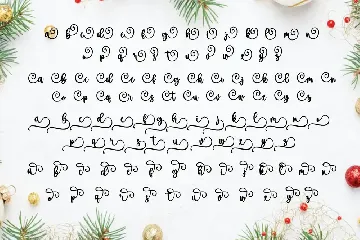 a b c d e f g h i j k l m n
o p q r s t u v w x y z
Ca Cb Cc Cd Ce Cf Cg Ch Ci Cj Ck Cl Cm Cn
Co Cp Cq Cr Cs Ct Cu Cv Cw Cx Cy Cz
a b c d e f g h i j k l m n
o p q r s t u v w x y z
a b c d e f g h i j k l m n
o p q r s t u v w x y z